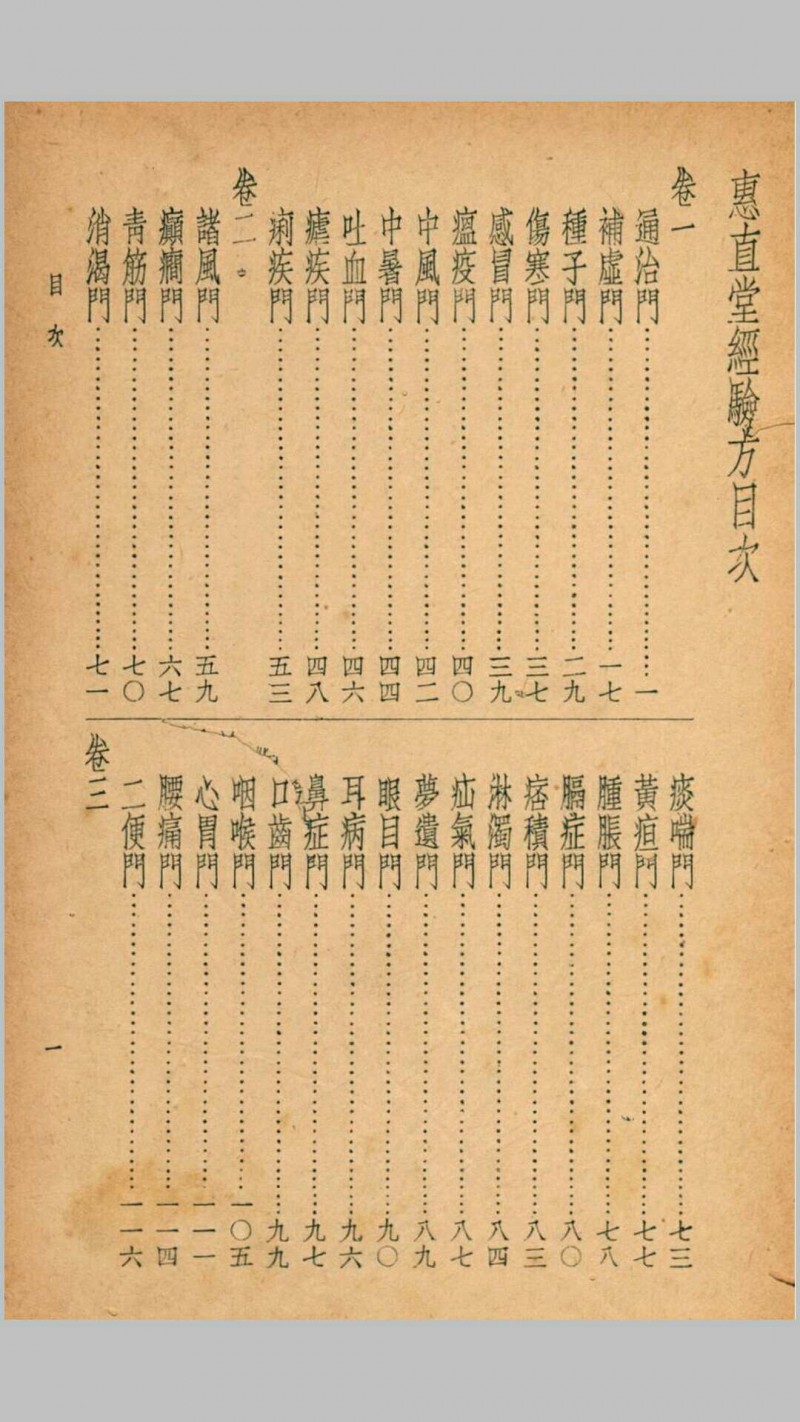 惠直堂經驗方目次
卷一
通治門……一
補虛門……一七
種子門……二九
傷寒門……三七
感冒門……三九
瘟疫門……四〇
中風門……四二
中暑門……四四
吐血門……四六
瘧疾門……四八
痢疾門……五三
卷二
諸風門……五九
癲癇門……六七
靑筋門……七〇
消渴門……七一
痰喘門……七三
黃疸門……七七
腫脹門……七八
膈症門……八〇
痞積門……八三
淋濁門……八四
疝氣門……八七
夢遺門……八九
眼目門……九〇
耳病門……九六
鼻症門……九七
口齒門……九九
咽喉門……一〇五
心胃門……一一一
腰痛門……一一四
二便門……一一六
卷三
目次
一